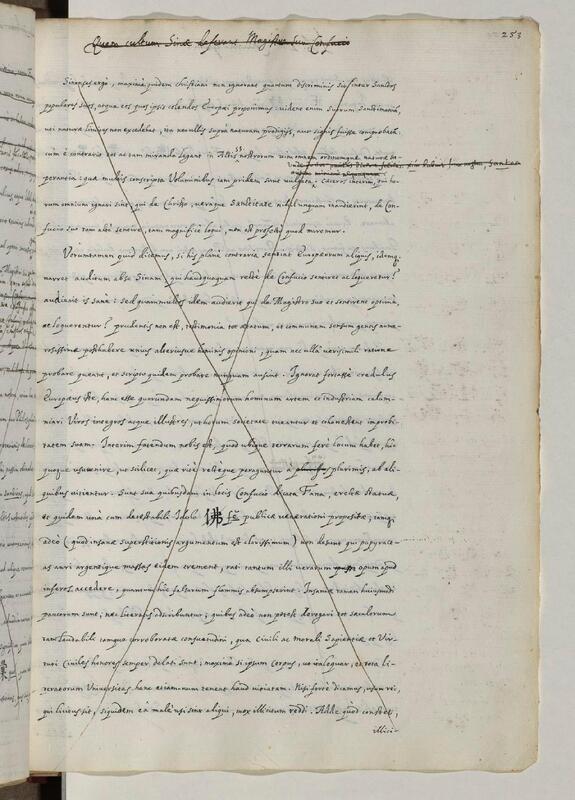 253
Quem cultum Sinæ deferant Magistro suo Confucio
Sinenses ergò, maximè quidem christiani non ignorant quantum discriminis sit inter Sanctos
populares suos, atque eos quos ipsis colendos Europæi proponimus: vident enim suorum Sanctimoniam,
uti naturæ limites non excedebat, ita nec ullis supra naturam prodigijs, aut signis fuisse comprobatam:
cùm è contrario tot ac tam miranda legant in Actis SS. nostrorum
perantia: quæ multis conscripta Voluminibus iam pridem sunt vulgata. Cæteros interim, qui ho-
rum omnium ignari sint, qui de Christo, veraque Sanctitate nihil unquam inaudierint, de Con-
fucio suo tam altè sentire, tam magnificè loqui, non est profectò quod miremur.
Verumtamen quid dicemus, si his planè contraria sentiat Europæorum aliquis, idemq.
narret auditum abs se Sinam, qui haudquaquam rectè de Confucio sentiret ac loqueretur?
audierit is sanè: sed quam multos idem audierit qui de Magistro suo et sentirent optimè,
ac loquerentur? prudentis non est, testimonia tot ætatum, et communem sensum gentis nume-
rosissimæ posthabere unius alteriusve hominis opinioni, quam nec ullâ verisimili ratione
probare queant, et scripto quidem probare nunquam ausint. Ignorat fortassè credulus
Europæus ille, hanc esse quorundam nequissimorum hominum artem et industriam calum-
niari Viros integros atque illustres, ut horum societate tueantur et cohonestent improbi-
tatem suam. Interim fatendum nobis est, quod ubique terrarum ferè locum habet, hîc
quoque usu venire, ut scilicet, quæ ritè rectèque peraguntur à plurimis, ab ali-
quibus vitientur. Sunt sua quibusdam in locis Confucio dicata Fana, erectæ Statuæ,
et quidem unà cum detestabili Idolo 佛 Fĕ publicæ venerationi propositæ; iamq.
adeò (quod insanæ superstitionis argumentum est clarissimum) non desunt qui papyrace-
as auri argentique massas eidem crement, rati tantum illi verarum opum apud
inferos accedere, quantum hîc falsarum flammis absumpserint. Insania tamen huiusmodi
paucorum sunt; nec literatis adscribuntur; quibus adeò non potest derogari tot sæculorum
tam laudabili tamque corroboratæ consuetudini, quâ Civili ac Morali Sapientiæ et Vir-
tuti Civiles honores semper delati sunt; maximè si ipsum corpus, ut ita loquar, et tota li-
teratorum Universitas hanc etiamnum tenent haud vitiatam. Nisi fortè dicamus, usum rei,
qui licitus sit, siquidem eâ malè usi sint aliqui, mox illicitum reddi. Adde quòd constet,
illici-